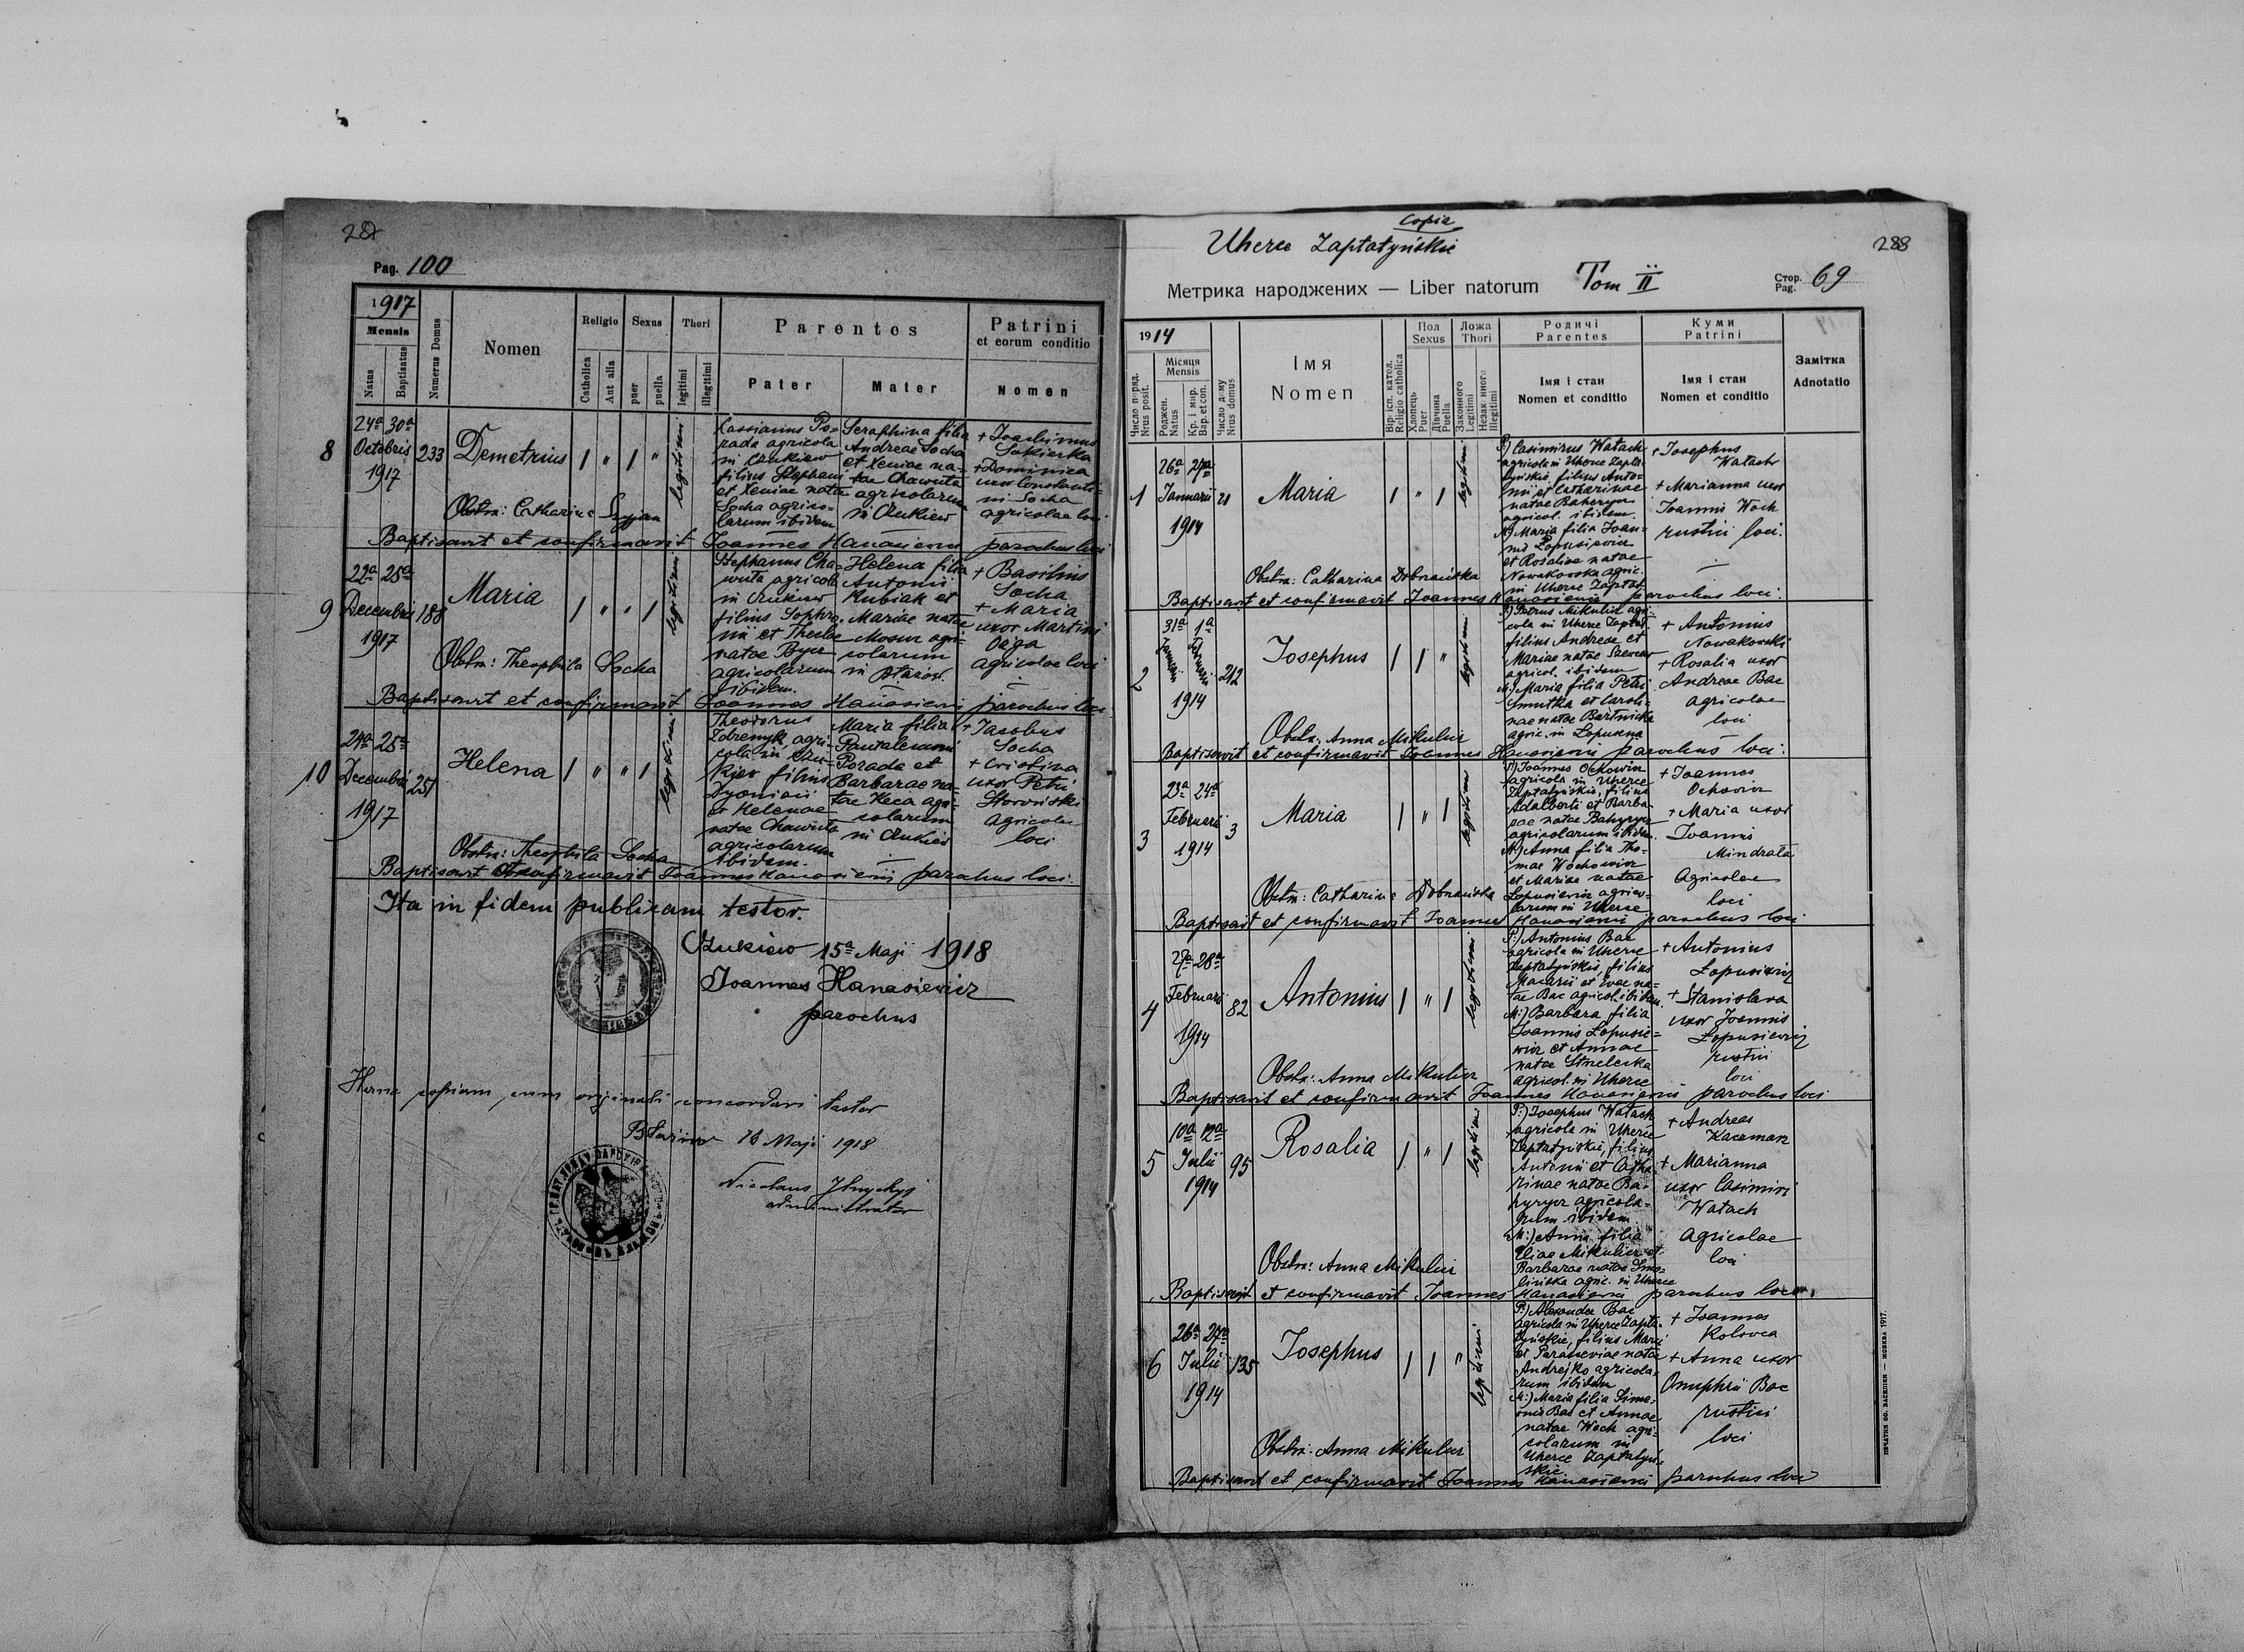 287
Pag. 100
1917
Mensis
Natus
Baptisatus
Numerus Domus
Nomen
Religio
Catholica
Aut alia
Sexus
puer
puella
Thori
legitimi
illegitimi
Parentes
Pater
Mater
Patrini
et eorum conditio
Nomen
8
24a 30a
Octobris
1917
233
Demetrius
legitimi
Cassianus Po=
rada agricola
in Czukiew
filius Stephani
et Xeniae natae
Socha agrico=
larum ibidem
Seraphina filia
Andreae Socha
et Xeniae na=
tae Chawuta
agricolarum
in Czukiew
+ Joachimus
Sokierka
+ Dominica
uxor Constanti=
ni Socha
agricolae loci
Obstr: Catharina Szyjan
Baptisavit et confirmavit Joannes Hanasiewicz parochus loci
9
22a 25a
Decembris
1917
188
Maria
legitimi
Stephanus Cha=
wuta agricola
in Czukiew
filius Sophro=
nii et Theclae
natae Bycz
agricolarum
ibidem.
Helena filia
Antonii
Kubiak et
Mariae natae
Mosur agri=
colarum
in Błażow.
+ Basilius
Socha
+ Maria
uxor Martini
Ożga
agricolae loci
Obstr: Theophila Socha
Baptisavit et confirmavit Joannes Hanasiewicz parochus loci
10
24a 25a
Decembris
1917
251
Helena
legitimi
Theodorus
Zdremyk, agri=
cola in Czu=
kiew filius
Dyonisii
et Helenae
natae Chawuta
agricolarum
ibidem.
Maria filia
Pantalemoni
Porada et
Barbarae na=
tae Keca agri=
colarum
in Czukiew
+ Jacobus
Socha
+ Cristina
uxor Petri
Storoński
agricolae
loci
Obstr: Theophila Socha
Baptisavit et confirmavit Joannes Hanasiewicz parochus loci.
Ita in fidem publicam testor.
Czukiew 15a Maji 1918
Joannes Hanasiewicz
parochus
Hanc copiam cum originali concordari testor
Błażiw 16 Maji 1918
Nicolaus Ilnyckyj
administrator
288
Copia
Uherce Zapłatyńskie
Метрика народжених — Liber natorum Tom II
Стор.
Pag. 69
1914
Число поряд.
Nrus posit.
Місяця
Mensis
Рожден.
Natus
Кр. і мир.
Bap. et con.
Число дому
Nrus domus
Імя
Nomen
Віроісп. катол.
Religio catholica
Пол
Sexus
Хлопець
Puer
Дівчина
Puella
Ложа
Thori
Законного
Legitimi
Незаконного
Illegitimi
Родичі
Parentes
Імя і стан
Nomen et conditio
Куми
Patrini
Імя і стан
Nomen et conditio
Замітка
Adnotatio
1
26a 27a
Januarii
1914
21
Maria
legitimi
P:) Casimirus Watach
agricola in Uherce Zapła=
tyńskie, filius Anto=
nii et Catharinae
natae Baheryn
agricol. ibidem.
M:) Maria filia Joan=
nis Łopusiewicz
et Rosaliae natae
Nowakowska agric.
in Uherce Zapłat.
+ Josephus
Watach
+ Marianna uxor
Joannis Woch
rustici loci.
Obstr: Catharina Dobrzańska
Baptisavit et confirmavit Joannes Hanasiewicz parochus loci.
2
31a 1a
Januarii Februarii
1914
212
Josephus
legitimi
P:) Petrus Mikulicz agri=
cola in Uherce Zapłat.
filius Andreae et
Mariae natae Szewczuk
agricol. ibidem
M:) Maria filia Petri
Smutka et Caroli=
nae natae Bartnicka
agric. in Łopuszna
+ Antonius
Nowakowski
+ Rosalia uxor
Andreae Bac
agricolae
loci
Obstr: Anna Mikulicz
Baptisavit et confirmavit Joannes Hanasiewicz parochus loci.
3
23a 24a
Februarii
1914
3
Maria
legitimi
P:) Joannes Ochowicz
agricola in Uherce
Zapłatyńskie, filius
Adalberti et Barba=
rae natae Bahyryn
agricolarum ibidem.
M:) Anna filia Tho=
mae Wochowicz
et Mariae natae
Łopusiewicz agrico=
larum in Uherce
+ Joannes
Ochowicz
+ Maria uxor
Joannis
Mindrata
Agricolae
loci
Obstr: Catharina Dobrzańska
Baptisavit et confirmavit Joannes Hanasiewicz parochus loci
4
27a 28a
Februarii
1914
82
Antonius
legitimi
P:) Antonius Bac
agricola in Uherce
Zapłatyńskie, filius
Macarii et Evae na=
tae Bac agricol. ibidem.
M:) Barbara filia
Joannis Łopusie=
wicz et Annae
natae Strzelecka
agricol. in Uherce
+ Antonius
Łopusiewicz
+ Stanislava
uxor Joannis
Łopusiewicz
rustici
loci
Obstr: Anna Mikulicz
Baptisavit et confirmavit Joannes Hanasiewicz parochus loci
5
10a 12a
Julii
1914
95
Rosalia
legitimi
P:) Josephus Watach
agricola in Uherce
Zapłatyńskie, filius
Antonii et Catha=
rinae natae Ba=
hyryn agricola=
rum ibidem.
M:) Anna filia
Eliae Mikulicz et
Barbarae natae Smo=
lińska agric. in Uherce
+ Andreas
Kaczmarz
+ Marianna
uxor Casimiri
Watach
agricolae
loci
Obstr: Anna Mikulicz
Baptisavit et confirmavit Joannes Hanasiewicz parochus loci.
6
26a 27a
Julii
1914
135
Josephus
legitimi
P:) Alexander Bac
agricola in Uherce Zapła=
tyńskie, filius Marci
et Parasceviae natae
Andrejko agricola=
rum ibidem
M:) Maria filia Sime=
onis Bac et Annae
natae Woch agri=
colarum in
Uherce Zapłatyń=
skie.
+ Joannes
Kolowca
+ Anna uxor
Onuphrii Bac
rustici
loci
Obstr: Anna Mikulicz
Baptisavit et confirmavit Joannes Hanasiewicz parochus loci